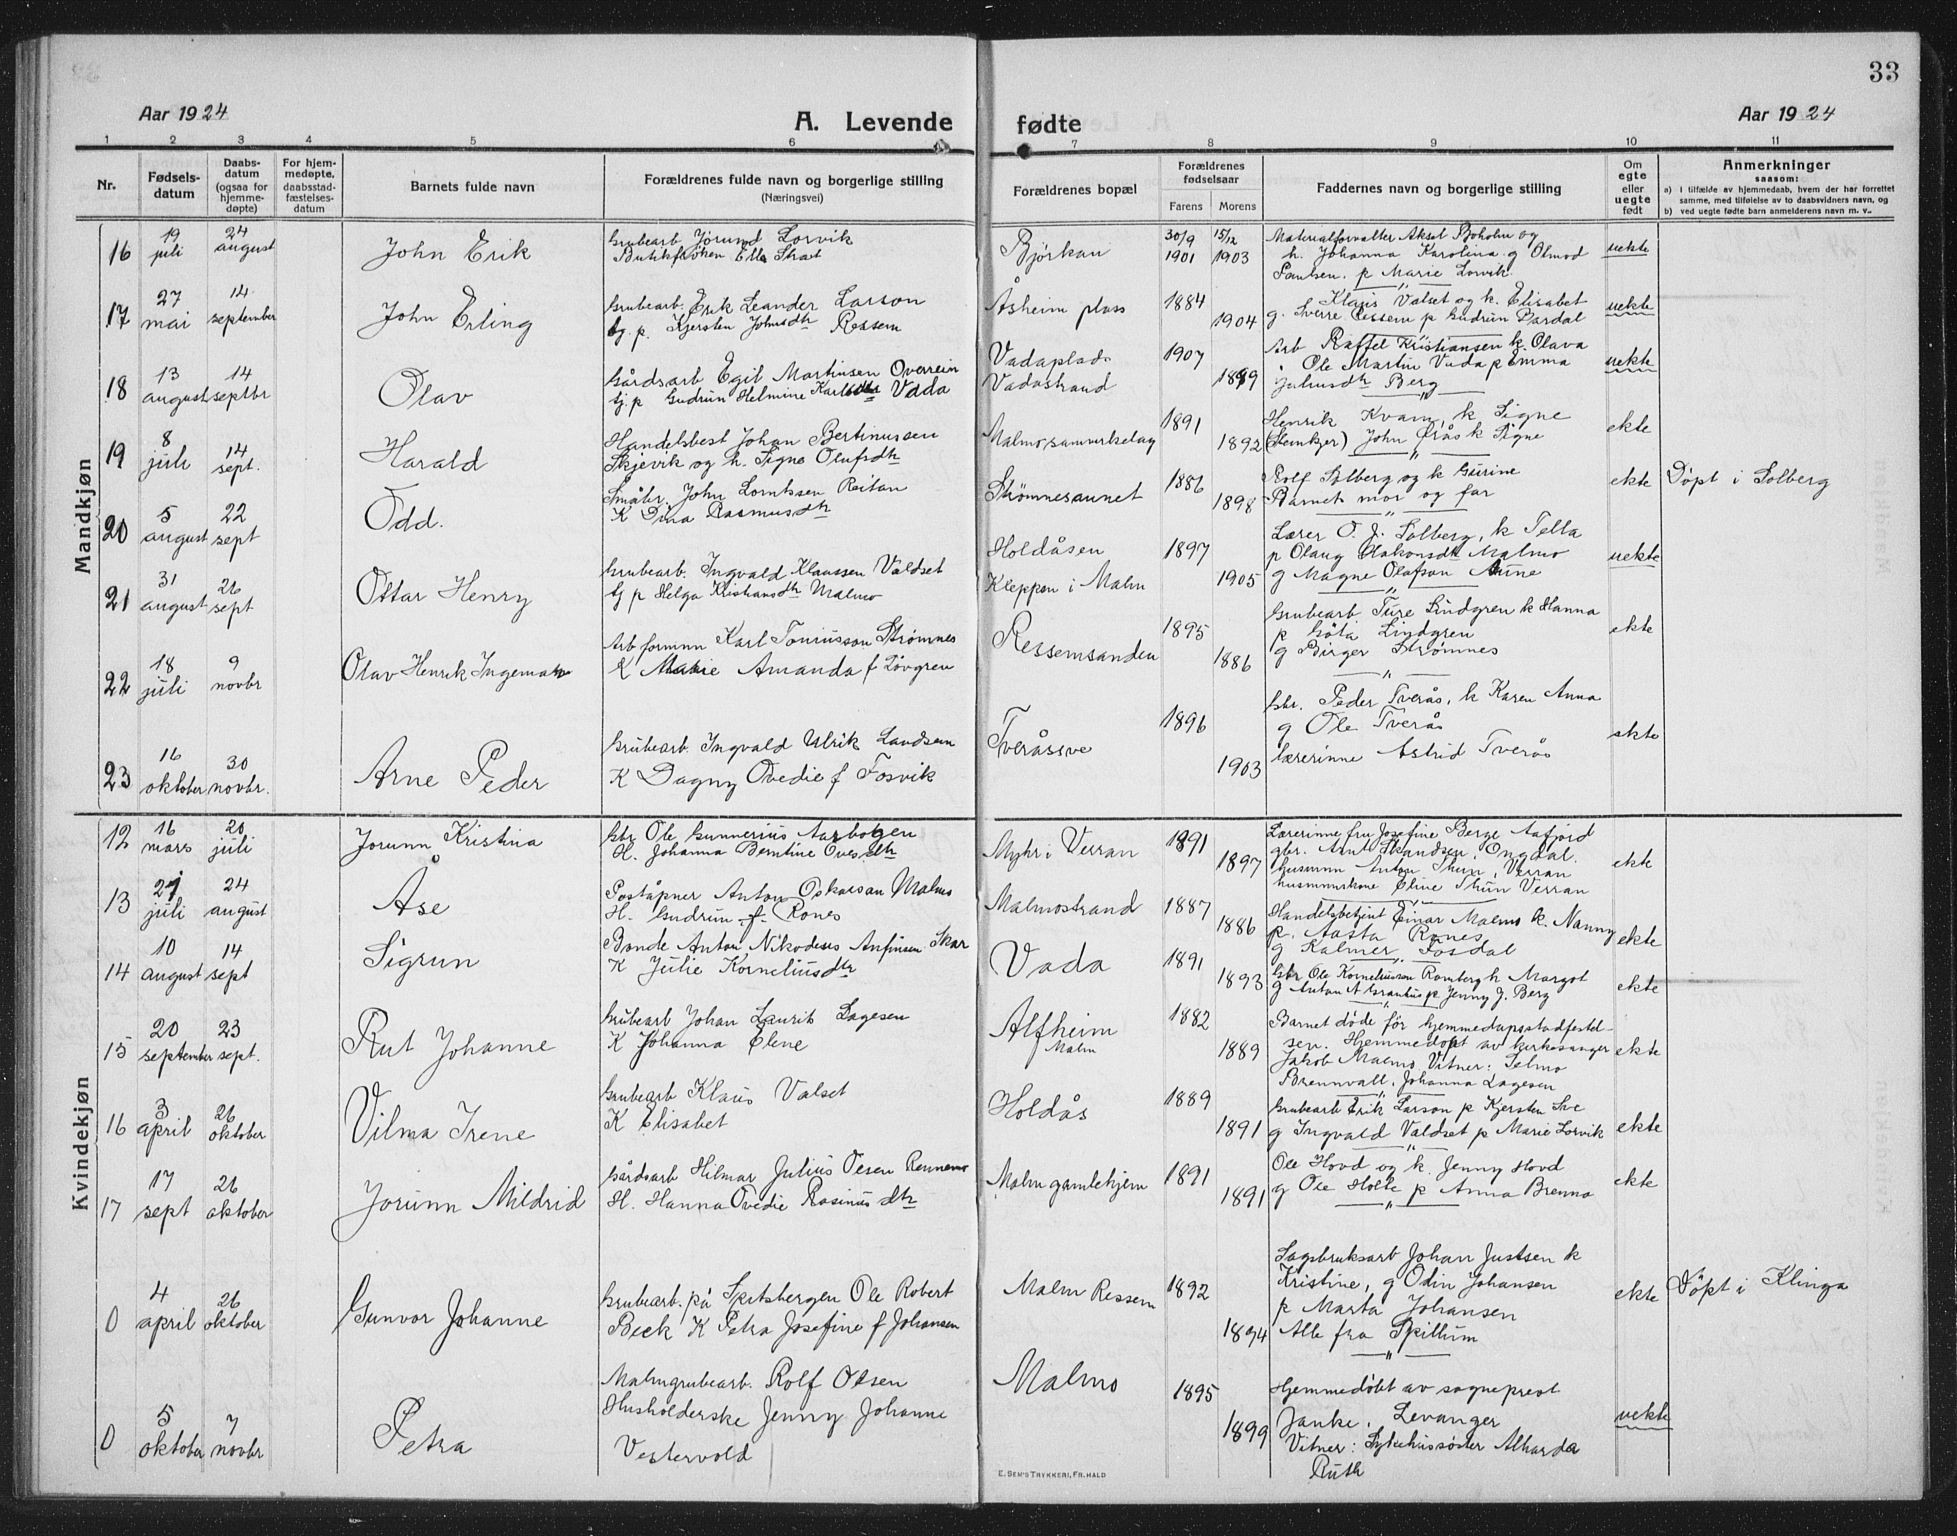 33
Aar 1924
A. Levende fødte
Aar 1924
1 2 3 4 5 6 7 8 9 10 11
Nr.
Fødsels-
datum
Daabs-
datum
(ogsaa for
hjemme-
døpte)
For hjem-
medøpte,
daabsstad-
fæstelses-
datum
Barnets fulde navn
Forældrenes fulde navn og borgerlige stilling
(Næringsvei)
Forældrenes bopæl
Forældrenes
fødselsaar
Farens Morens
Faddernes navn og borgerlige stilling
Om
egte
eller
uegte
født
Anmerkninger
saasom:
a) I tilfælde av hjemmedaab, hvem der har forrettet
samme, med tilføielse av to daabsvidners navn, og
b) ved uegte fødte barn anmelderens navn m. v..
Mandkjøn
16 19 juli 24 august John Erik
Grubearb Jorund Lorvik
Bjørkan 30/9 1901 15/12 1903
Materialforvalter Aksel Boholm og
h. Johanna Karolina g Olmod
Paulsen. p Marie Lorvik
uekte
17 27 mai 14 september John Erling
Grubearb. Erik Leander Larson
og p. Kjersten Johnsdtr Ressem
Åsheim plass 1884 1904
Klaus Valset og k. Elisabet
g. Sverre Ressem p Gudrun Dardal
uekte
18 13 august 14 septbr Olav
Gårdsarb Egil Martinsen Overrein
tj. p Gudrun Helmine Karlsdtr Vada
Vadaplads
Vadastrand
1907 1899
Arb Raffel Kristiansen k. Olava
Ole Martin Vada p Emma
Julnusdtr Berg
uekte
19 8 juli 14 sept. Harald
Handelsbest Johan Bertinussen
Skjevik og h. Signe Olufsdtr
Malmo samvirkelag 1891 1892
Henrik Kvam, k Signe
(Stenkjer) John Ørås k Signe
ekte
20 5 august 22 sept Odd.
Småbr. John Lorntssen Reitan
K Dina Rasmusdtr
Strømnesaunet 1886 1898
Rolf Solberg og k Gurine
Barnets mor og far
ekte
Døpt i Solberg
21 31 august 26 sept Ottar Henry
Grubearb. Ingvald Klaussen Valdset
tj p Helga Kristiansdtr Malmo
Holdåsen
Kleppen i Malm
1897 1905
Lærer O. J. Solberg, k Tella
p Olaug Hakonsdtr Malmo
g Magne Olafson Aune
uekte
22 18 juli 9 novbr Olav Henrik Ingemar
Arb formnn Karl Toniusson Strømnes
K Marie Amanda f Løvgren
Ressemsanden 1895 1886
Grubearb Ture Lindgren k Hanna
p Göta Lindgren
g Birger Strømnes
ekte
23 16 oktober 30 novbr. Arne Peder
Grubearb. Ingvald Ulrik Landsem
K Dagny Ovedie f Fosvik
Tveråsive 1896 1903
Gbr. Peder Tverås, k Karen Anna
g Ole Tverås
Lærerinne Astrid Tverås
ekte
Kvindekjøn
12 16 mars 20 juli Jorunn Kristina
Gbr Ole Gunnerius Aarbogen
H. Johanna Berntine Ovesdtr
Myhr i Verran 1891 1897
Lærerinne fru Josefine Berge Aafjord
gbr. Arnt Skandsen, Ongdal.
husmnn Anton Thun, Verran
husmnnskone Eline Thun Verran
ekte
13 21 juli 24 august Åse
Poståpner Anton Oskarsen Malmo
H. Gudrun f. Rones
Malmostrand 1887 1886
Handelsbetjent Einar Malmo k. Nanny
p. Aasta Rones
g Kalmer Fosdal
ekte
14 10 august 14 sept Sigrun
Bonde Anton Nikodeus Anfinsen Skar
K Julie Korneliusdtr
Vada 1891 1893
Gbr Ole Korneliusson Romberg k Margot
g Anton A Granhus p Jenny J. Berg
ekte
15 20 september 23 sept. Rut Johanne
Grubearb Johan Laurits Lagesen
K Johanna Elene
Alfheim
Malm
1882 1889
Barnet døde før hjemmedapsstadfestel-
sen. Hjemmedøpt av kirkesanger
Jakob Malmo Vitner: Selmo
Brennvall, Johanna Lagesen
ekte
16 3 april 26 oktober Vilma Irene
Grubearb Klaus Valset
K Elisabet
Holdås 1889 1891
Grubearb Erik Larson p Kjersten Sve
g Ingvald Valdset p Marie Lorvik
ekte
17 17 sept 26 oktober Jorunn Mildrid
Gårdsarb Hilmar Julius Olsen Rennemo
H. Hanna Ovedie Rasmusdtr
Malm gamlehjem 1891 1891
Ole Hovd og k. Jenny Hovd
g Ole Holte p Anna Brenno
ekte
0 4 april 26 oktober Gunvor Johanne
Grubearb. på Spitsbergen Ole Robert
Beck K Petra Josefine f Johansen
Malm Ressem 1892 1894
Sagbruksarb Johan Justsen k
Kristine, g Odin Johansen
p Marta Johansen
Alle fra Spillum
ekte
Døpt i Klinga
0 5 oktober 7 novbr Petra
Malmgrubearb. Rolf Olsen
Husholderske Jenny Johanne
Vestervold
Malmo 1895 1899
Hjemmedøbt av sogneprest
Janke, Levanger
Vitner: Sykehussøster Alharda
Ruth
uekte
E. SEM'S TRYKKERI, FR.HALD